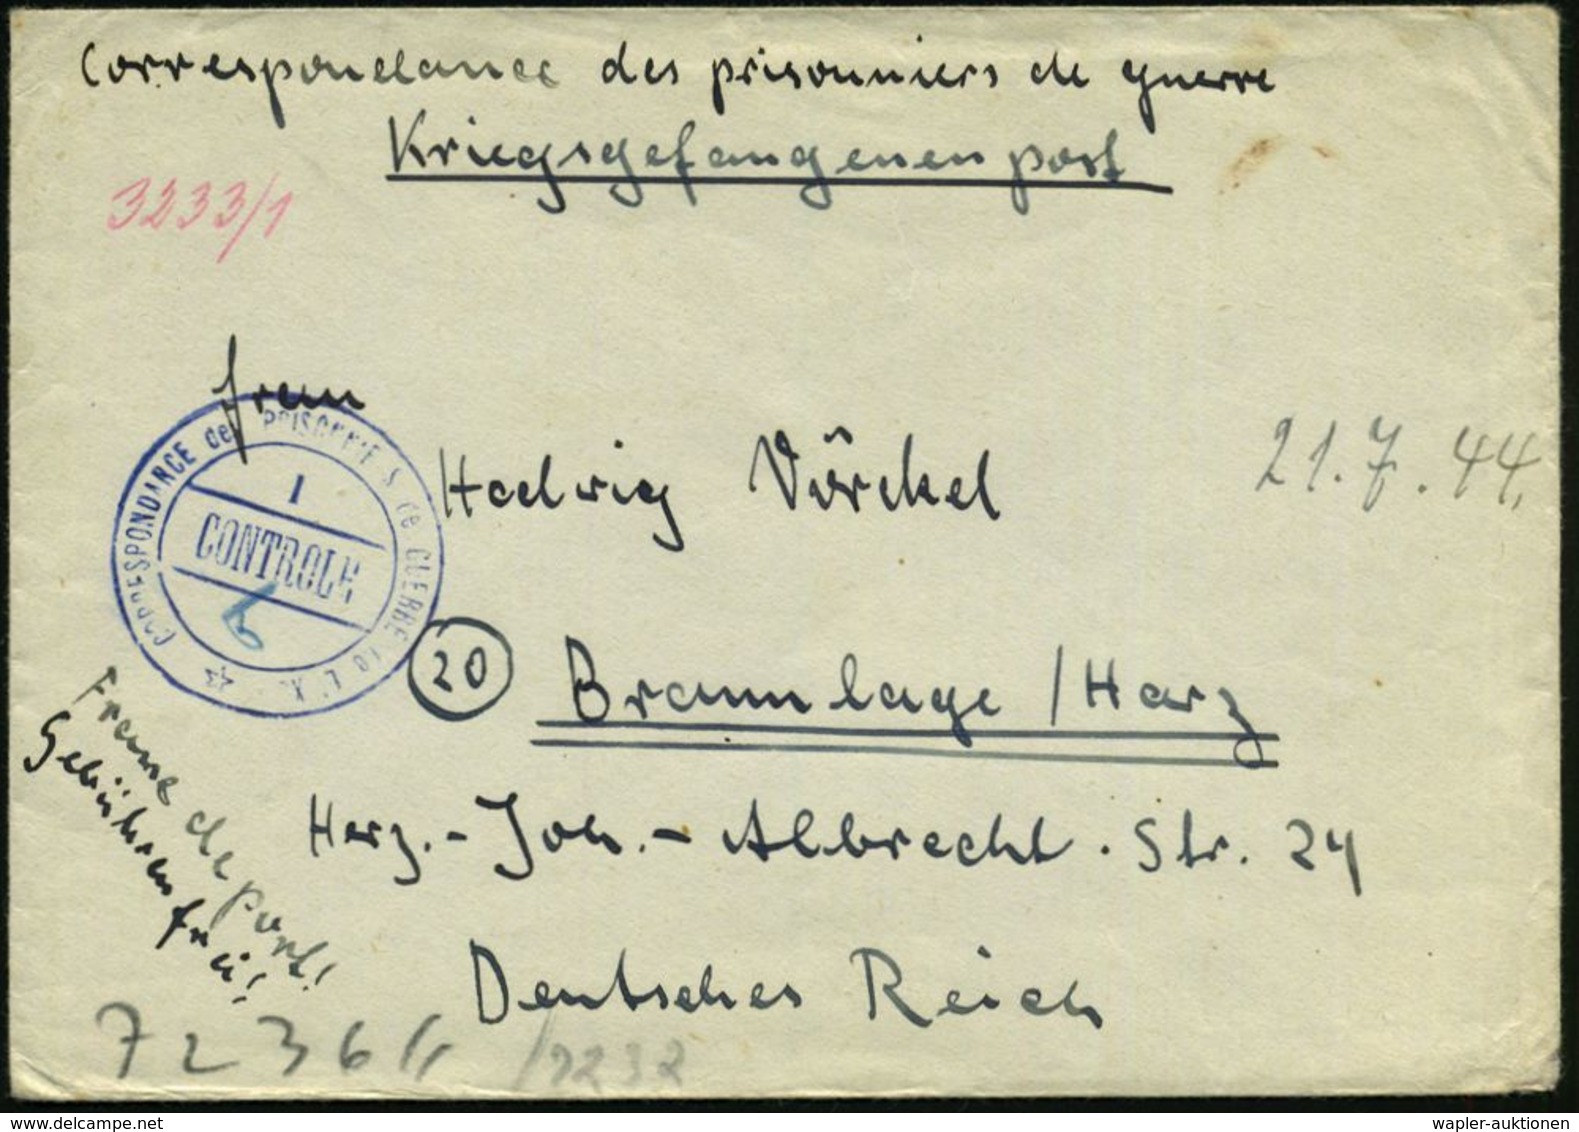 Correspondance des prisonniers de guerre
Kriegsgefangenenpost
3233/1
Frau
Hedwig Vörckel
21.7.44.
CORRESPONDANCE de PRISONNIERS de GUERRE
I
CONTROLE
(20) Braunlage / Harz
Franc de port!
Gebührenfrei!
Herz.-Joh.-Albrecht.Str. 24
Deutsches Reich
7236
delcampe.net
wapler-auktionen